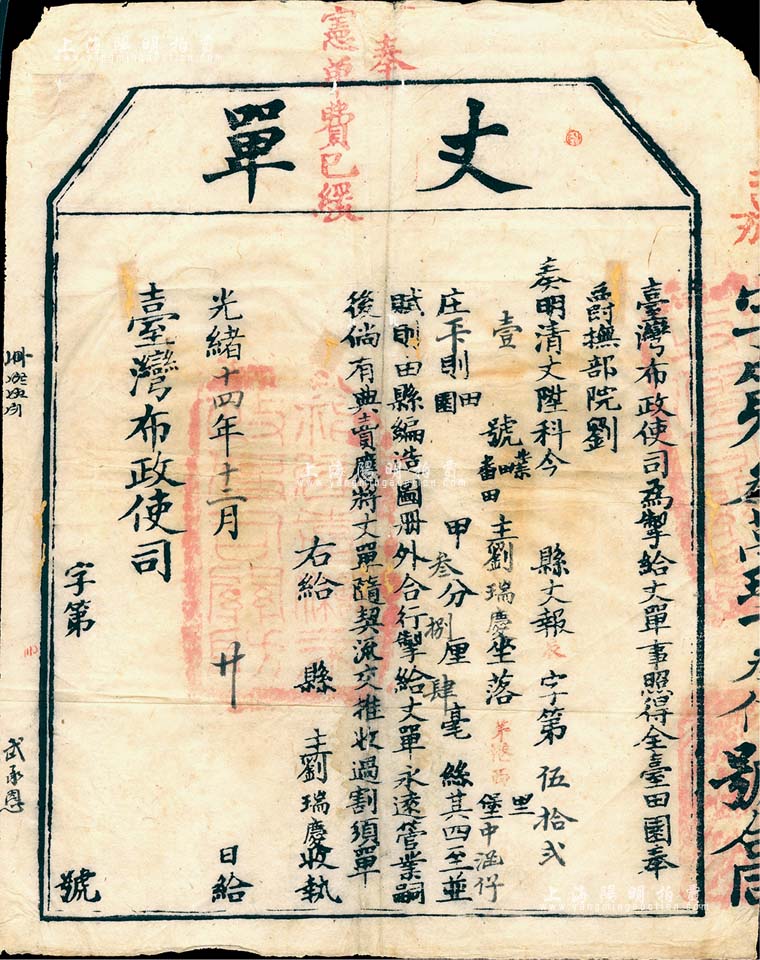 奉
憲單費已繳
丈單
臺灣布政使司為掣給丈單事照得全臺田園奉
爵撫部院劉
奏明清丈陞科今 縣丈報 字第 伍拾弍
壹 號 業 番田 主劉瑞慶坐落 茅港西 堡 里 中 仔
庄 下則 田 園 甲 叁分 捌厘 肆毫 絲其四至並
賦則由縣編造圖册外合行掣給丈單永遠管業嗣
後倘有典賣應將丈單隨契流交推收過割須單
右給 縣 主劉瑞慶收執
光緒十四年十二月 廿 日給
臺灣布政使司
字第 號
號合同
武承恩
上海陽明拍賣
www.yangmingauction.com
上海陽明拍賣
www.yangmingauction.com
上海陽明拍賣
www.yangmingauction.com